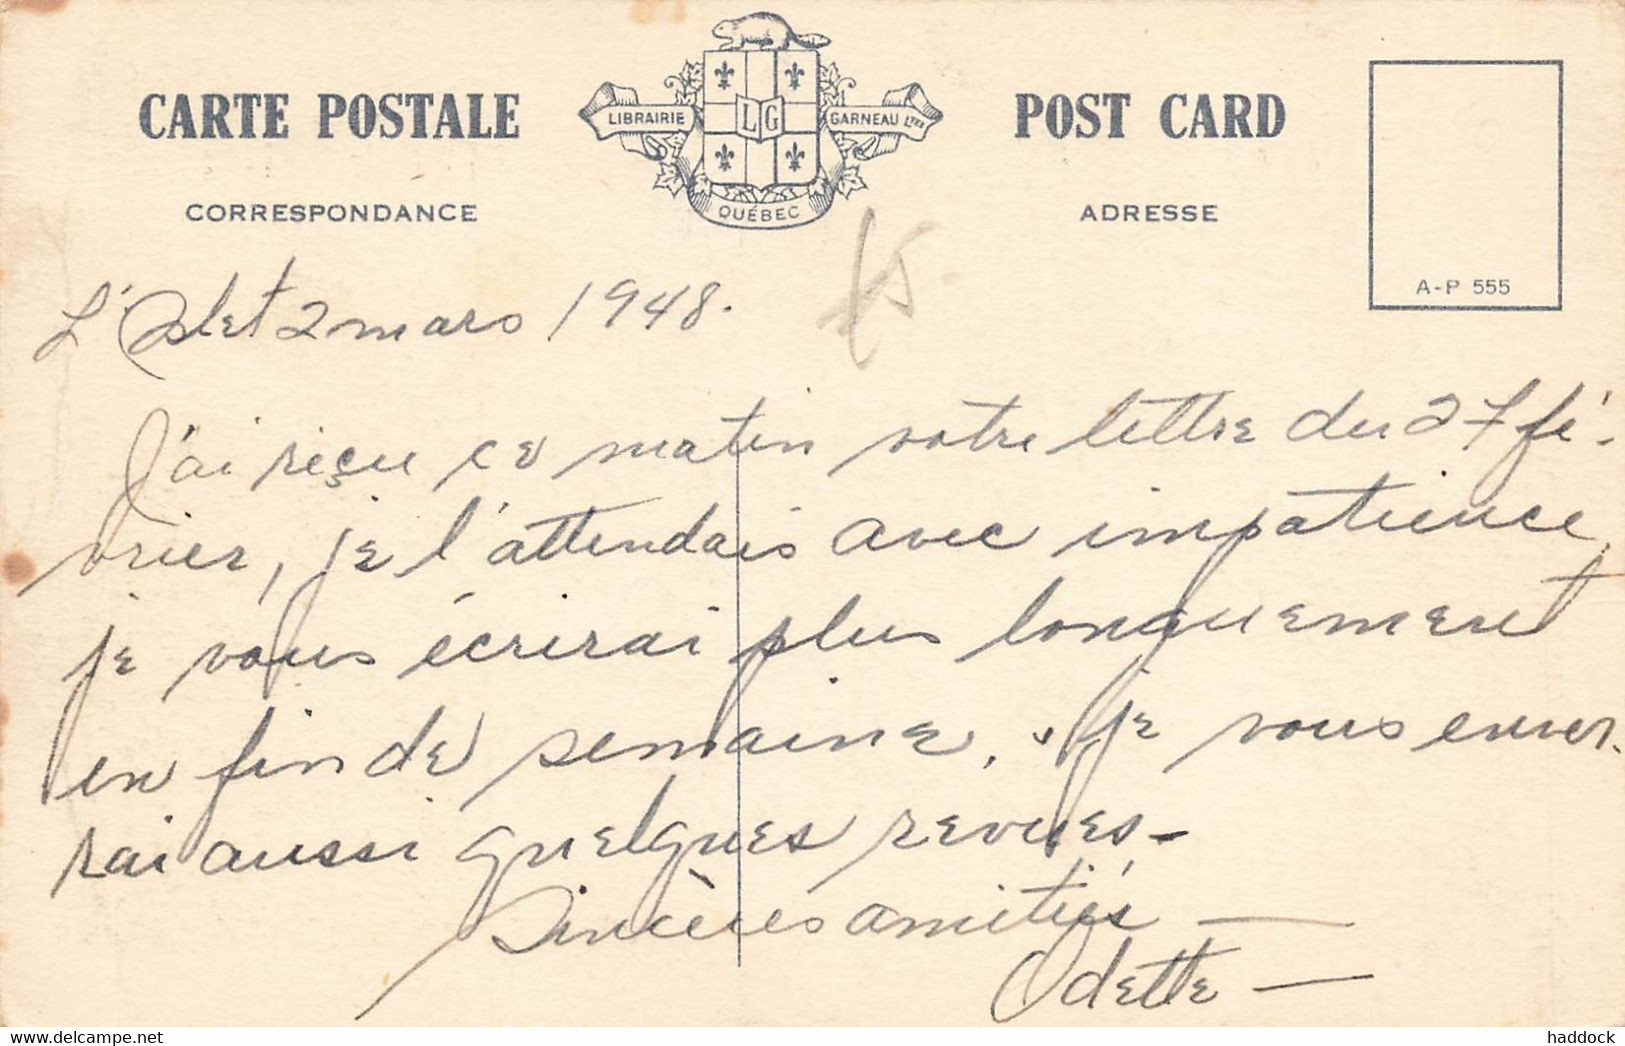 CARTE POSTALE
LIBRAIRIE LG GARNEAU LTÉE
QUÉBEC
POST CARD
CORRESPONDANCE
ADRESSE
A-P 555
L'Islet 2 mars 1948.
J'ai reçu ce matin votre lettre du 27 fé-
vrier, je l'attendais avec impatience,
je vous écrirai plus longuement
en fin de semaine. je vous enver-
rai aussi quelques revues-
Sincères amitiés —
Odette —
www.delcampe.net
haddock